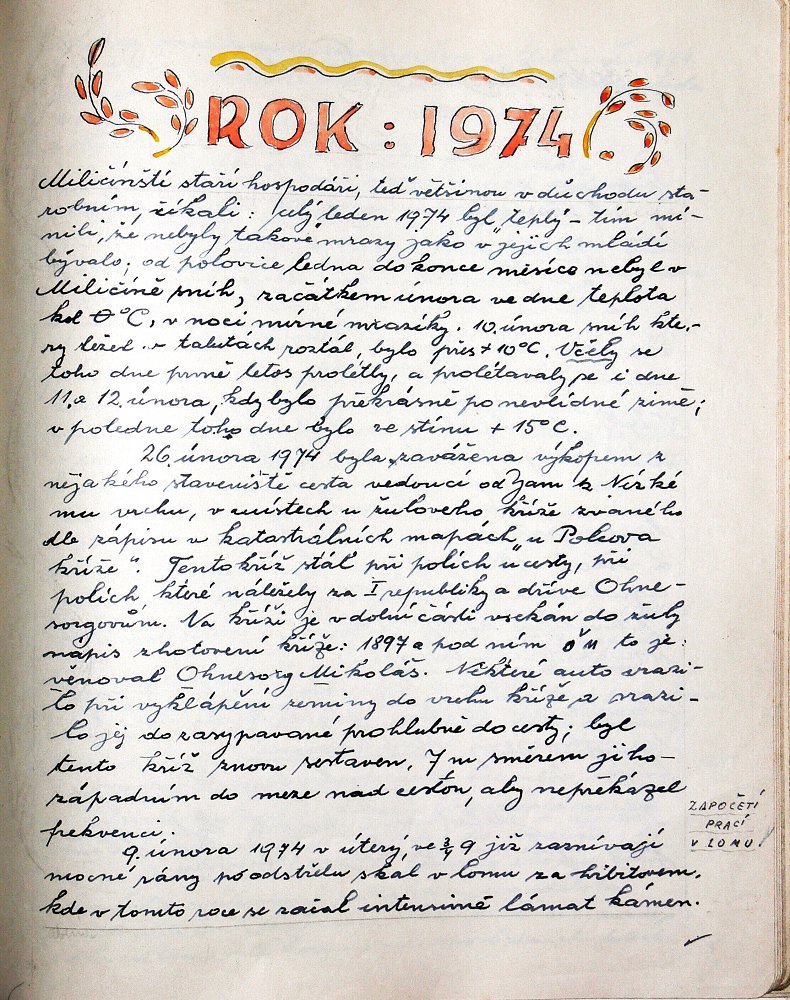 ROK : 1974
Miličínští staří hospodáři, teď většinou v důchodu sta-
robním, říkali: celý leden 1974 byl teplý – tím mí-
nili, že nebyly takové mrazy jako v jejich mládí
bývalo; od polovice ledna do konce měsíce nebyl v
Miličíně sníh, začátkem února ve dne teplota
kol 0°C, v noci mírné mrazíky. 10. února sníh kte-
rý ležel v taktách roztál, bylo přes +10°C. Včely se
toho dne prvně letos prolétly, a prolétavaly se i dne
11. a 12. února, kdy bylo překrásně po nevlídné zimě;
v poledne toho dne bylo ve stínu + 15°C.
26. února 1974 byla zavážena výkopem z
nějakého staveniště cesta vedoucí od Jam k Nízké
mu vrchu, v místech u žulového kříže zvaného
dle zápisu v katastrálních mapách „u Polcova
kříže". Tento kříž stál při polích u cesty, při
polích, které náležely za I republiky a dříve Ohne-
sorgovům. Na kříži je v dolní části vsekán do žuly
nápis zhotovení kříže: 1897 a pod ním OM to je:
věnoval Ohnesorg Mikoláš. Některé auto vrazi-
lo při vyklápění zeminy do vrchu kříže a srazi-
lo jej do zasypávané prohlubně do cesty; byl
tento kříž znovu sestaven, 7 m směrem jiho-
západním do meze nad cestou, aby nepřekážel
frekvenci.
9. února 1974 v úterý, ve 3/4 9 již zaznívají
mocné rány po odstřelu skal v lomu za hřbitovem,
kde v tomto roce se začal intensivně lámat kámen.
ZAPOČETÍ
PRACÍ
V LOMU!